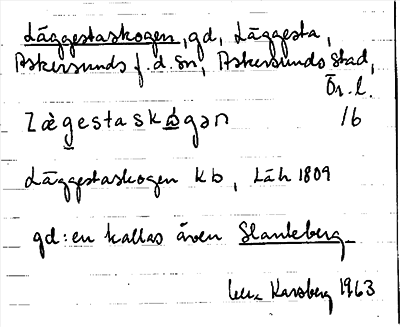 Läggestaskogen, gd, Läggesta,
Askersunds f.d. sn, Askersunds stad,
Ör. l.
Lægestaskógən 16
Läggestaskogen kb, Läh 1809
gd:en kallas även Slanteberg
Karsberg 1963